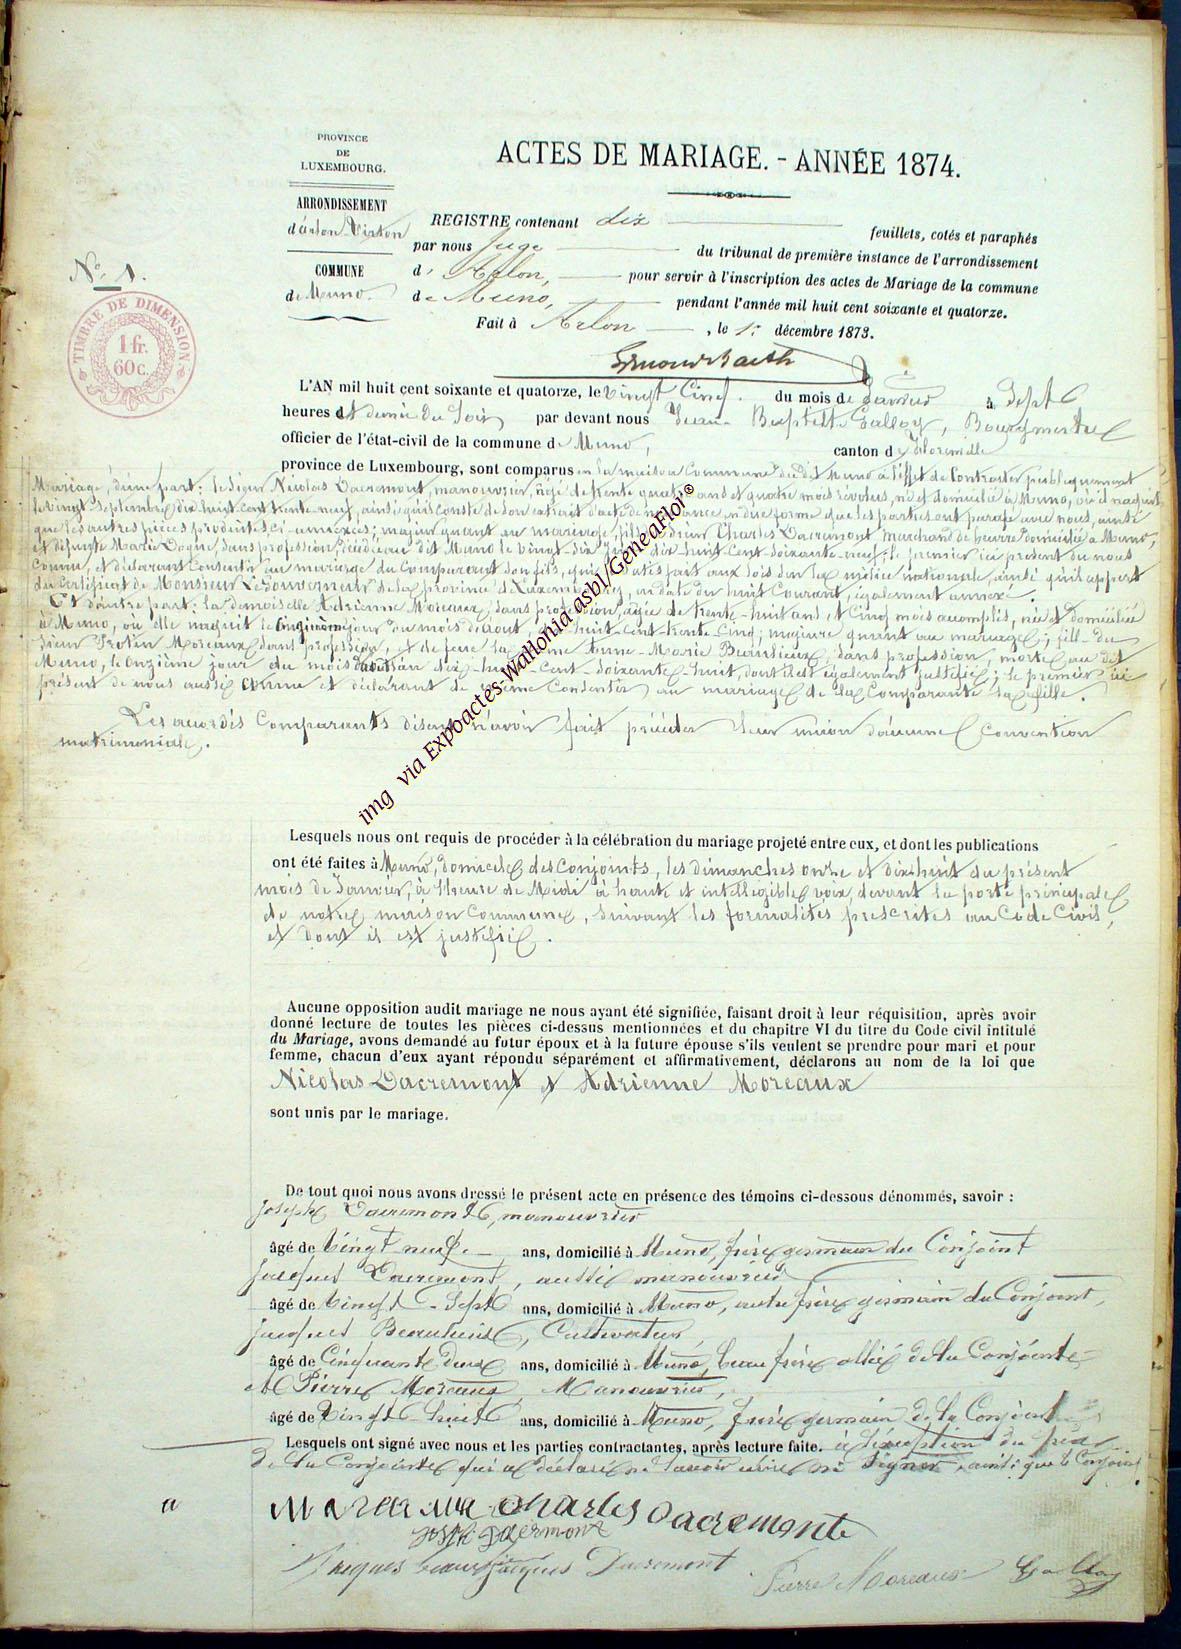 PROVINCE
DE
LUXEMBOURG.
ACTES DE MARIAGE. - ANNÉE 1874.
ARRONDISSEMENT
d'arlon-Virton
COMMUNE
de Muno.
No. 1.
TIMBRE DE DIMENSION
1 fr.
60 c.
REGISTRE contenant dix feuillets, cotés et paraphés
par nous Juge du tribunal de première instance de l'arrondissement
d' Arlon, pour servir à l'inscription des actes de Mariage de la commune
de Muno, pendant l'année mil huit cent soixante et quatorze.
Fait à Arlon, le 1r décembre 1873.
L'AN mil huit cent soixante et quatorze, le vingt cinq du mois de Janvier à Sept
heures et demie du soir par devant nous Jean Baptiste Galloy, Bourgmestre
officier de l'état-civil de la commune de Muno, canton de Florenville
province de Luxembourg, sont comparus en la maison Commune du dit Muno à l'effet de Contracter publiquement
Mariage, d'une part: le sieur Nicolas Dacremont, manouvrier, agé de trente quatre ans et quatre mois révolus, né et domicilié à Muno, où il naquit
le vingt Septembre dix huit cent trente neuf, ainsi qu'il conste de son extrait d'acte de naissance, en due forme que les parties ont parafé avec nous, ainsi
que les autres pièces produites, ci-annexées; majeur quant au mariage, fils du sieur Charles Dacremont marchand de beurre domicilié à Muno,
et défunte Marie Dogne, sans profession, décédée au dit Muno le vingt six dix huit cent soixante-neuf; le premier ici présent de nous
connu, et déclarant Consentir au mariage du Comparant son fils, qui a satisfait aux lois sur la milice nationale, ainsi qu'il appert
du certificat de Monsieur Le Gouverneur de la province de Luxembourg, en date du huit Courant, également annexé.
Et d'autre part: la demoiselle Adrienne Moreaux, sans profession, agée de trente-huit ans, et Cinq mois accomplis, née et domiciliée
à Muno, où elle naquit le cinquième jour du mois d'août dix-huit-Cent-trente-Cinq; majeure quant au mariage; fille du
sieur Moreaux sans profession, et de feue la Anne-Marie sans profession, morte au dit
Muno, le onzième jour du mois d'août an dix-huit-Cent-Soixante-huit, dont il est également justifié; le premier ici
présent de nous aussi connu et déclarant de même Consentir au mariage de la Comparante sa fille.
Les accordés Comparants disent n'avoir fait précéder leur union d'aucune Convention
matrimoniale.
img via Expoactes-Wallonia asbl/GeneaFlor®
Lesquels nous ont requis de procéder à la célébration du mariage projeté entre eux, et dont les publications
ont été faites à Muno, domicile des Conjoints, les dimanches onze et dixhuit du présent
mois de Janvier, à l'heure de Midi à haute et intelligible voix, devant la porte principale
de notre maison Commune, suivant les formalités prescrites au Code Civil,
et dont il est justifié.
Aucune opposition audit mariage ne nous ayant été signifiée, faisant droit à leur réquisition, après avoir
donné lecture de toutes les pièces ci-dessus mentionnées et du chapitre VI du titre du Code civil intitulé
du Mariage, avons demandé au futur époux et à la future épouse s'ils veulent se prendre pour mari et pour
femme, chacun d'eux ayant répondu séparément et affirmativement, déclarons au nom de la loi que
Nicolas Dacremont et Adrienne Moreaux
sont unis par le mariage.
De tout quoi nous avons dressé le présent acte en présence des témoins ci-dessous dénommés, savoir :
Joseph Dacremont, manouvrier
âgé de Vingt neuf ans, domicilié à Muno, frère germain du Conjoint
Jacques Dacremont, aussi manouvrier
âgé de Vingt-Sept ans, domicilié à Muno, autre frère germain du Conjoint,
Jacques Cultivateur,
âgé de Cinquante Deux ans, domicilié à Muno, beau frère allié de la Conjointe
et Pierre Moreaux, Manouvrier,
âgé de Vingt huit ans, domicilié à Muno, frère germain de la Conjointe
Lesquels ont signé avec nous et les parties contractantes, après lecture faite. à l'exception du père
de la Conjointe qui a déclaré ne savoir écrire ni signer, ainsi que le Conjoint
Charles Dacremont
Joseph Dacremont
Jacques Dacremont
Pierre Moreaux
Galloy